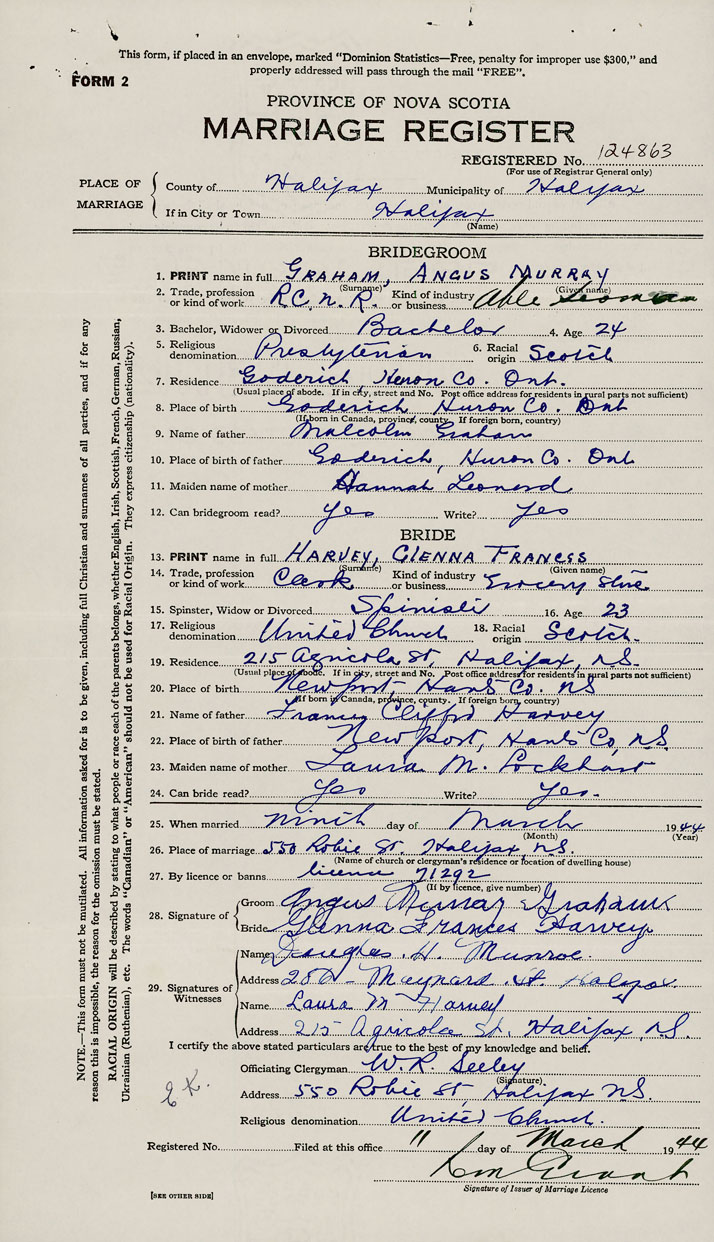 This form, if placed in an envelope, marked "Dominion Statistics—Free, penalty for improper use $300," and
properly addressed will pass through the mail "FREE".
FORM 2
PROVINCE OF NOVA SCOTIA
MARRIAGE REGISTER
REGISTERED No. 124863
(For use of Registrar General only)
PLACE OF MARRIAGE
County of Halifax Municipality of Halifax
If in City or Town Halifax
(Name)
BRIDEGROOM
1. PRINT name in full GRAHAM, ANGUS MURRAY
(Surname) (Given name)
2. Trade, profession or kind of work R.C.N.R. Kind of industry or business Able Seaman
3. Bachelor, Widower or Divorced Bachelor 4. Age 24
5. Religious denomination Presbyterian 6. Racial origin Scotch
7. Residence Goderich, Huron Co. Ont.
(Usual place of abode. If in city, street and No. Post office address for residents in rural parts not sufficient)
8. Place of birth Goderich Huron Co. Ont
(If born in Canada, province, county. If foreign born, country)
9. Name of father Malcolm Graham
10. Place of birth of father Goderich, Huron Co. Ont
11. Maiden name of mother Hannah Leonard
12. Can bridegroom read? Yes Write? Yes
BRIDE
13. PRINT name in full HARVEY, GLENNA FRANCES
(Surname) (Given name)
14. Trade, profession or kind of work Clerk Kind of industry or business Grocery Store
15. Spinster, Widow or Divorced Spinster 16. Age 23
17. Religious denomination United Church 18. Racial origin Scotch.
19. Residence 215 Agricola St, Halifax, N.S.
(Usual place of abode. If in city, street and No. Post office address for residents in rural parts not sufficient)
20. Place of birth Newport, Hants Co. NS
(If born in Canada, province, county. If foreign born, country)
21. Name of father Francis Clifford Harvey
22. Place of birth of father Newport, Hants Co, N.S.
23. Maiden name of mother Laura M. Lockhart
24. Can bride read? Yes Write? Yes.
25. When married ninth day of March 1944
(Month) (Year)
26. Place of marriage 550 Robie St. Halifax, N.S.
(Name of church or clergyman's residence or location of dwelling house)
27. By licence or banns licence 71292
(If by licence, give number)
28. Signature of
Groom Angus Murray Graham
Bride Glenna Frances Harvey
29. Signatures of Witnesses
Name Douglas H. Munroe.
Address Maynard St. Halifax
Name Laura M Harvey
Address 215 Agricola St. Halifax, N.S.
I certify the above stated particulars are true to the best of my knowledge and belief.
Officiating Clergyman W. R. Seeley
(Signature)
Address 550 Robie St, Halifax N.S.
Religious denomination United Church.
Registered No. Filed at this office 11 day of March 1944
Signature of Issuer of Marriage Licence
[SEE OTHER SIDE]
NOTE.—This form must not be mutilated. All information asked for is to be given, including full Christian and surnames of all parties, and if for any
reason this is impossible, the reason for the omission must be stated.
RACIAL ORIGIN will be described by stating to what people or race each of the parents belongs, whether English, Irish, Scottish, French, German, Russian,
Ukrainian (Ruthenian), etc. The words "Canadian" or "American" should not be used for Racial Origin. They express citizenship (nationality).